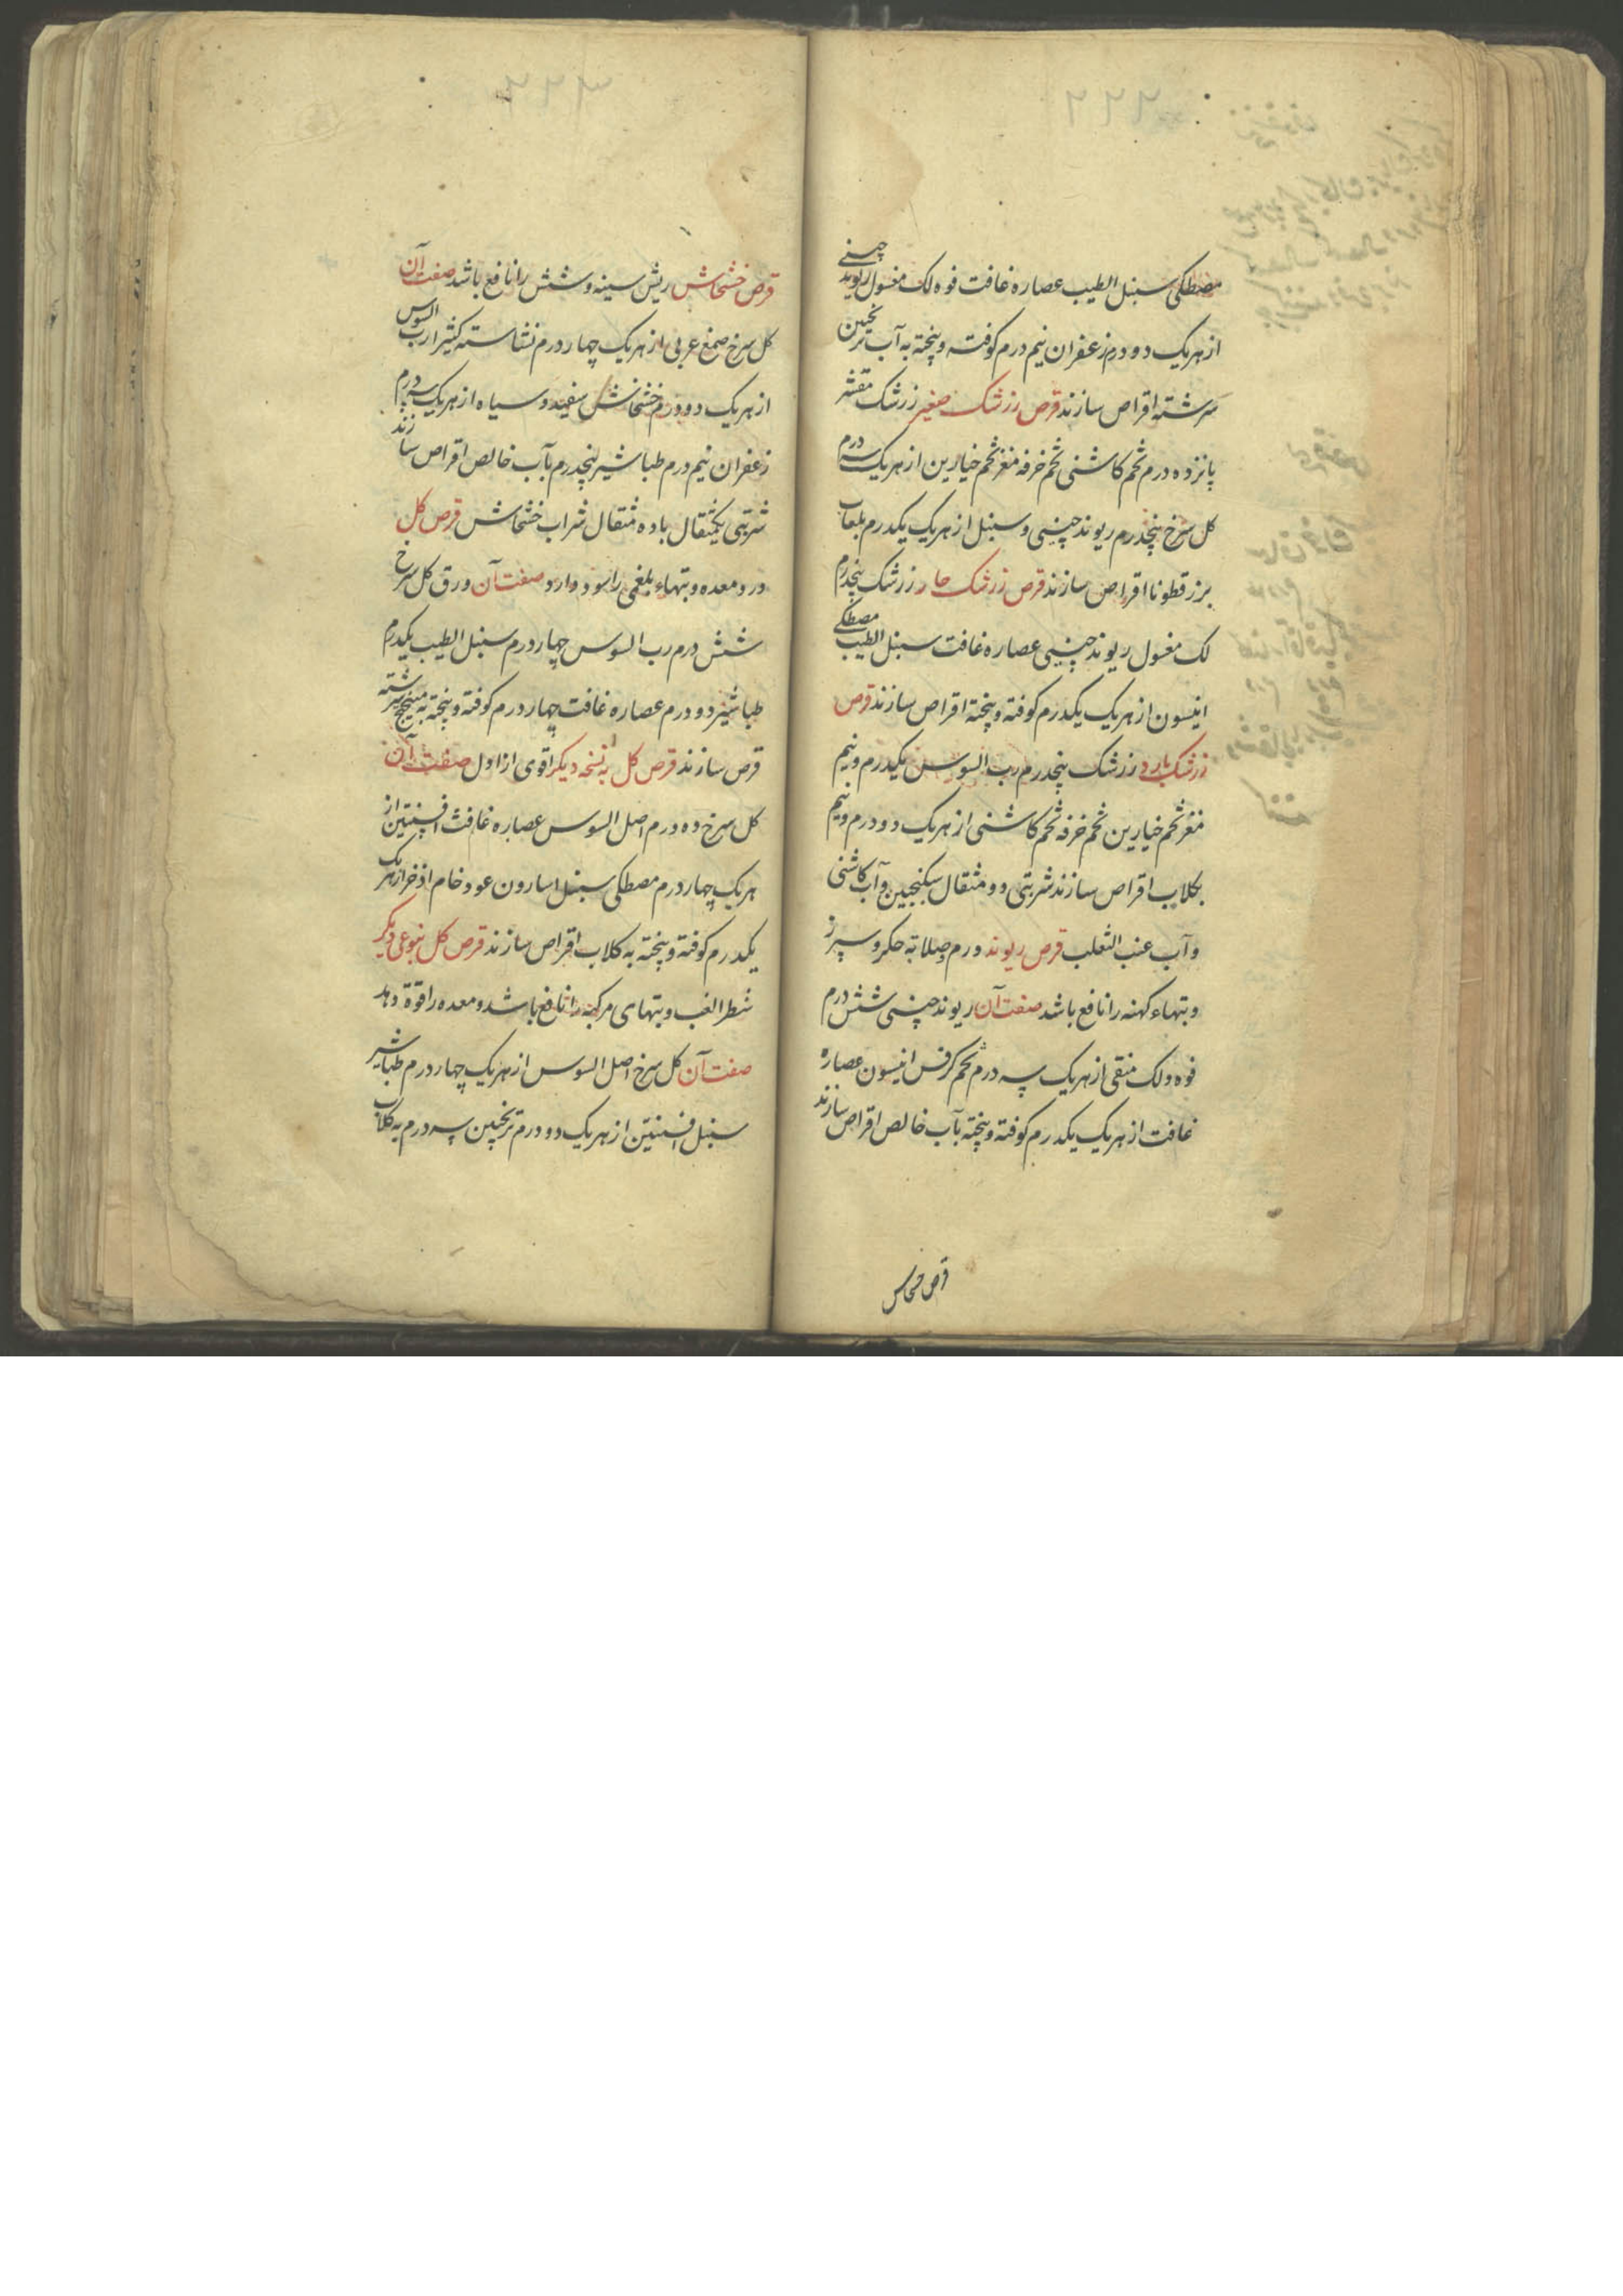 مصطکی سنبل الطیب عصاره غافت فوه لک مغسول ریوند چینی
از هریک دو درم زعفران نیم درم کوفته و پخته به آب ترنجبین
سرشته اقراص سازند قرص زرشک صغیر زرشک مقشر
پانزده درم تخم کاشنی تخم خرفه مغز تخم خیارین از هریک سه درم
کل سرخ پنجدرم ریوند چینی و سنبل از هریک یکدرم بلعاب
بزرقطونا اقراص سازند قرص زرشک حار زرشک پنجدرم
لک مغسول ریوند چینی عصاره غافت سنبل الطیب مصطکی
انیسون از هریک یکدرم کوفته و پخته اقراص سازند قرص
زرشک بارد زرشک پنجدرم رب السوس یکدرم و نیم
مغز تخم خیارین تخم خرفه تخم کاشنی از هریک دو درم و نیم
بکلاب اقراص سازند شربتی دو مثقال سکنجبین و آب کاشنی
و آب عنب الثعلب قرص ریوند ورم وصلابه جکر و سپرز
و تبهاء کهنه را نافع باشد صفت آن ریوند چینی شش درم
فوه و لک منقی از هریک سه درم تخم کرفس انیسون عصاره
غافت از هریک یکدرم کوفته و پخته بآب خالص اقراص سازند
قرص خشخاش
قرص خشخاش ریش سینه و شش را نافع باشد صفت آن
کل سرخ صمغ عربی از هریک چهار درم نشاسته کثیرا رب السوس
از هریک دو درم خشخاش سفید و سیاه از هریک سه درم
زعفران نیم درم طباشیر پنجدرم بآب خالص اقراص سازند
شربتی یکمثقال با ده مثقال شراب خشخاش قرص کل
درد معده و تبهاء بلغمی را سود دارد صفت آن ورق کل سرخ
شش درم رب السوس چهار درم سنبل الطیب یکدرم
طباشیر دو درم عصاره غافت چهار درم کوفته و پخته به میبختج سرشته
قرص سازند قرص کل به نسخه دیکر اقوی از اول صفت آن
کل سرخ ده درم اصل السوس عصاره غافث افسنتین از
هریک چهار درم مصطکی سنبل اسارون عود خام اذخر از هریک
یکدرم کوفته و پخته به کلاب اقراص سازند قرص کل بنوعی دیکر
شطر الغب و تبهای مرکبه را نافع باشد و معده را قوة دهد
صفت آن کل سرخ اصل السوس از هریک چهار درم طباشیر
سنبل افسنتین از هریک دو درم ترنجبین سه درم به کلاب